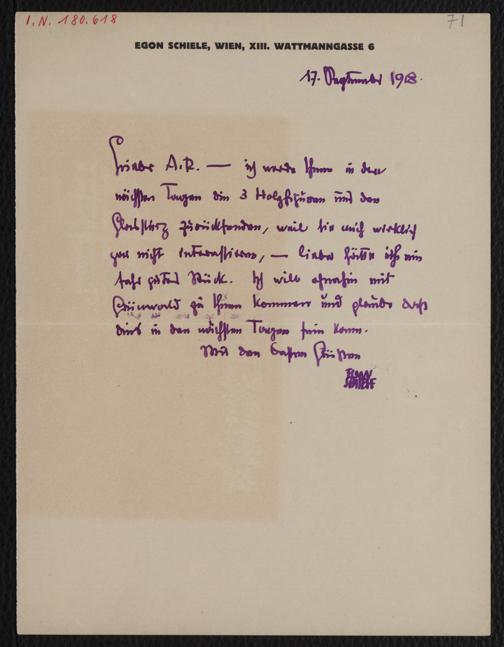 I.N. 180.618
71
EGON SCHIELE, WIEN, XIII. WATTMANNGASSE 6
17. September 1918.
Lieber A.R. — ich werde Ihnen in den
nächsten Tagen die 3 Holzfiguren und den
zurücksenden, weil sie mich wirklich
gar nicht interessieren, — lieber hätte ich ein
sehr gutes Stück. Ich will ohnehin mit
Grünwald zu Ihnen kommen und glaube daß
dies in den nächsten Tagen sein kann.
Mit den besten Grüßen
EGON
SCHIELE